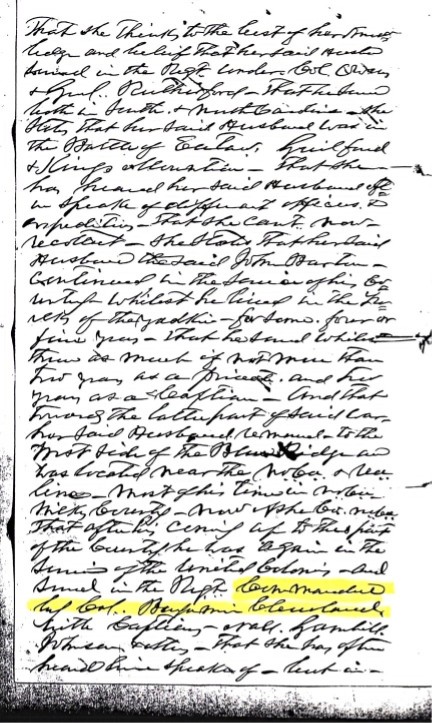 That she thinks to the best of her know
ledge and belief that her said Husba
served in the Regt. under Col. Owens
& Genl. Rutherford - That he served
both in South & North Carolina - she
states that her said Husband was in
the Battle of Eutaw, Guilford
& Kings Mountain - That she
has heard her said Husband oft
in speake of different officers &
expedition - That she cant now
recollect - she states that her said
Husband the said John Barton
continued in the service of his Co
untry whilst he lived in the Fo
rks of the yadkin - for some four or
five years - that he served whilst
there as much if not more than
two years as a private and two
years as a Captian - and that
towards the latter part of said war
her said Husband removed to the
West side of the Blue Ridge an
was located near the
line - most of his time in
Wilks County - now Ashe Co.
That after his coming up to this part
of the County he was again in the
service of the United Colonies - and
served in the Regt. Commanded
by Col. Benjamin Cleveland
with Captians - Gambill
Johnson & others - That she has often
heard him speake of - but in -